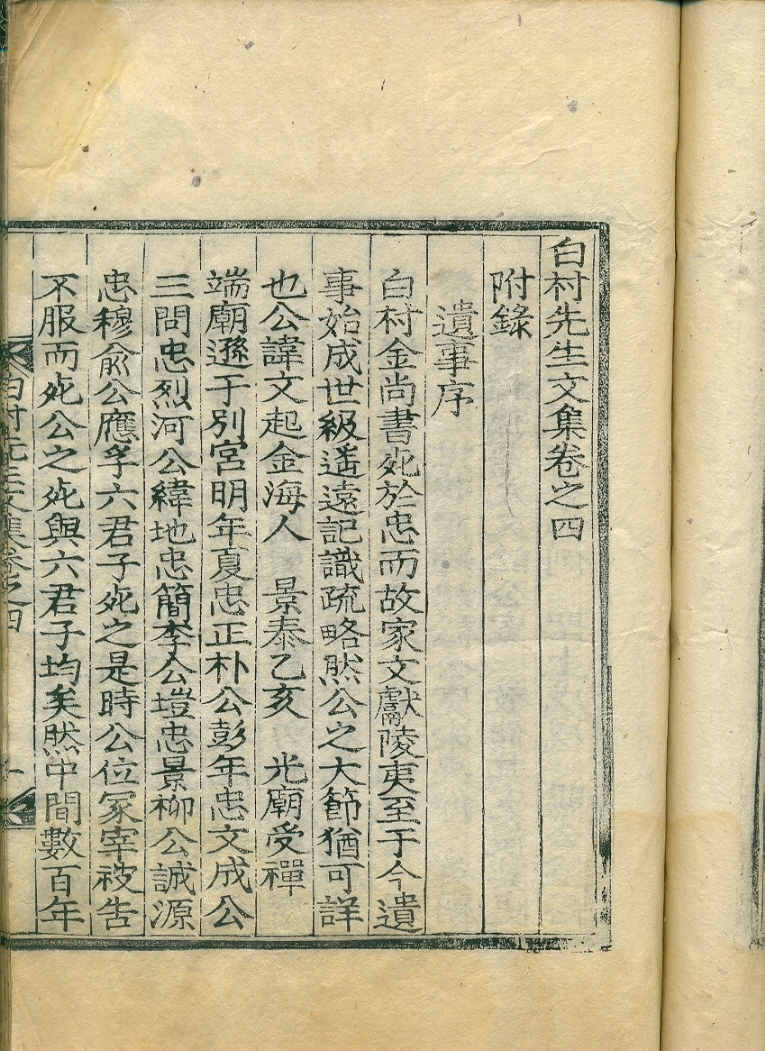 白村先生文集卷之四
附錄
遺事序
白村金尚書死於忠而故家文獻陵夷至于今遺
事始成世級遙遠記識疏略然公之大節猶可詳
也公諱文起金海人　景泰乙亥　光廟受禪
端廟遜于別宮明年夏忠正朴公彭年忠文成公
三問忠烈河公緯地忠簡李公塏忠景柳公誠源
忠穆兪公應孚六君子死之是時公位冢宰被告
不服而死公之死與六君子均矣然中間數百年
白村先生文集卷之四
一